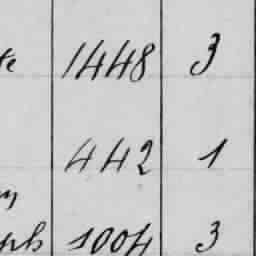 te 1448 3
442 1
1004 3